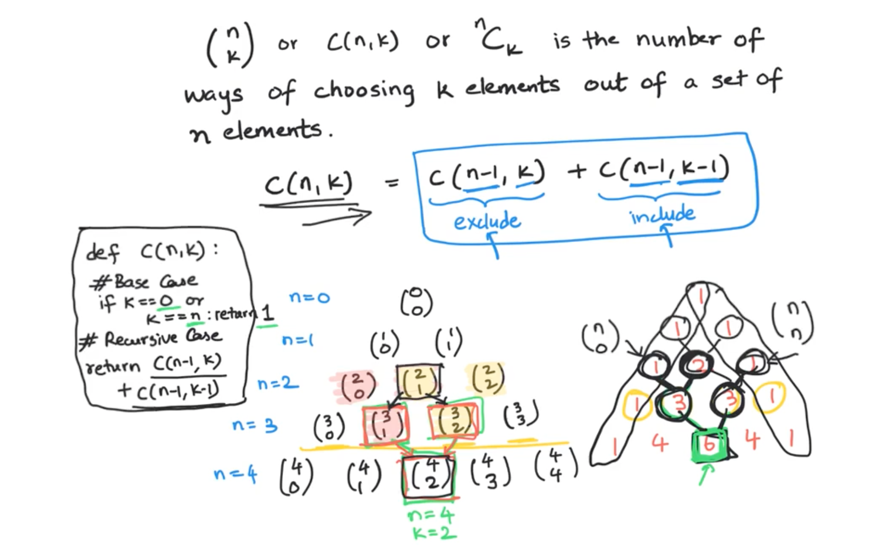 (n k) or C(n,k) or ⁿCₖ is the number of
ways of choosing k elements out of a set of
n elements.
C(n,k) = C(n-1, k) + C(n-1, k-1)
exclude include
def C(n,k):
# Base Case
if k==0 or
k==n: return 1
# Recursive Case
return C(n-1, k)
+ C(n-1, k-1)
n=0 (0 0)
n=1 (1 0) (1 1)
n=2 (2 0) (2 1) (2 2)
n=3 (3 0) (3 1) (3 2) (3 3)
n=4 (4 0) (4 1) (4 2) (4 3) (4 4)
n=4
k=2
(n 0) (n n)
1
1 1
1 2 1
1 3 3 1
1 4 6 4 1